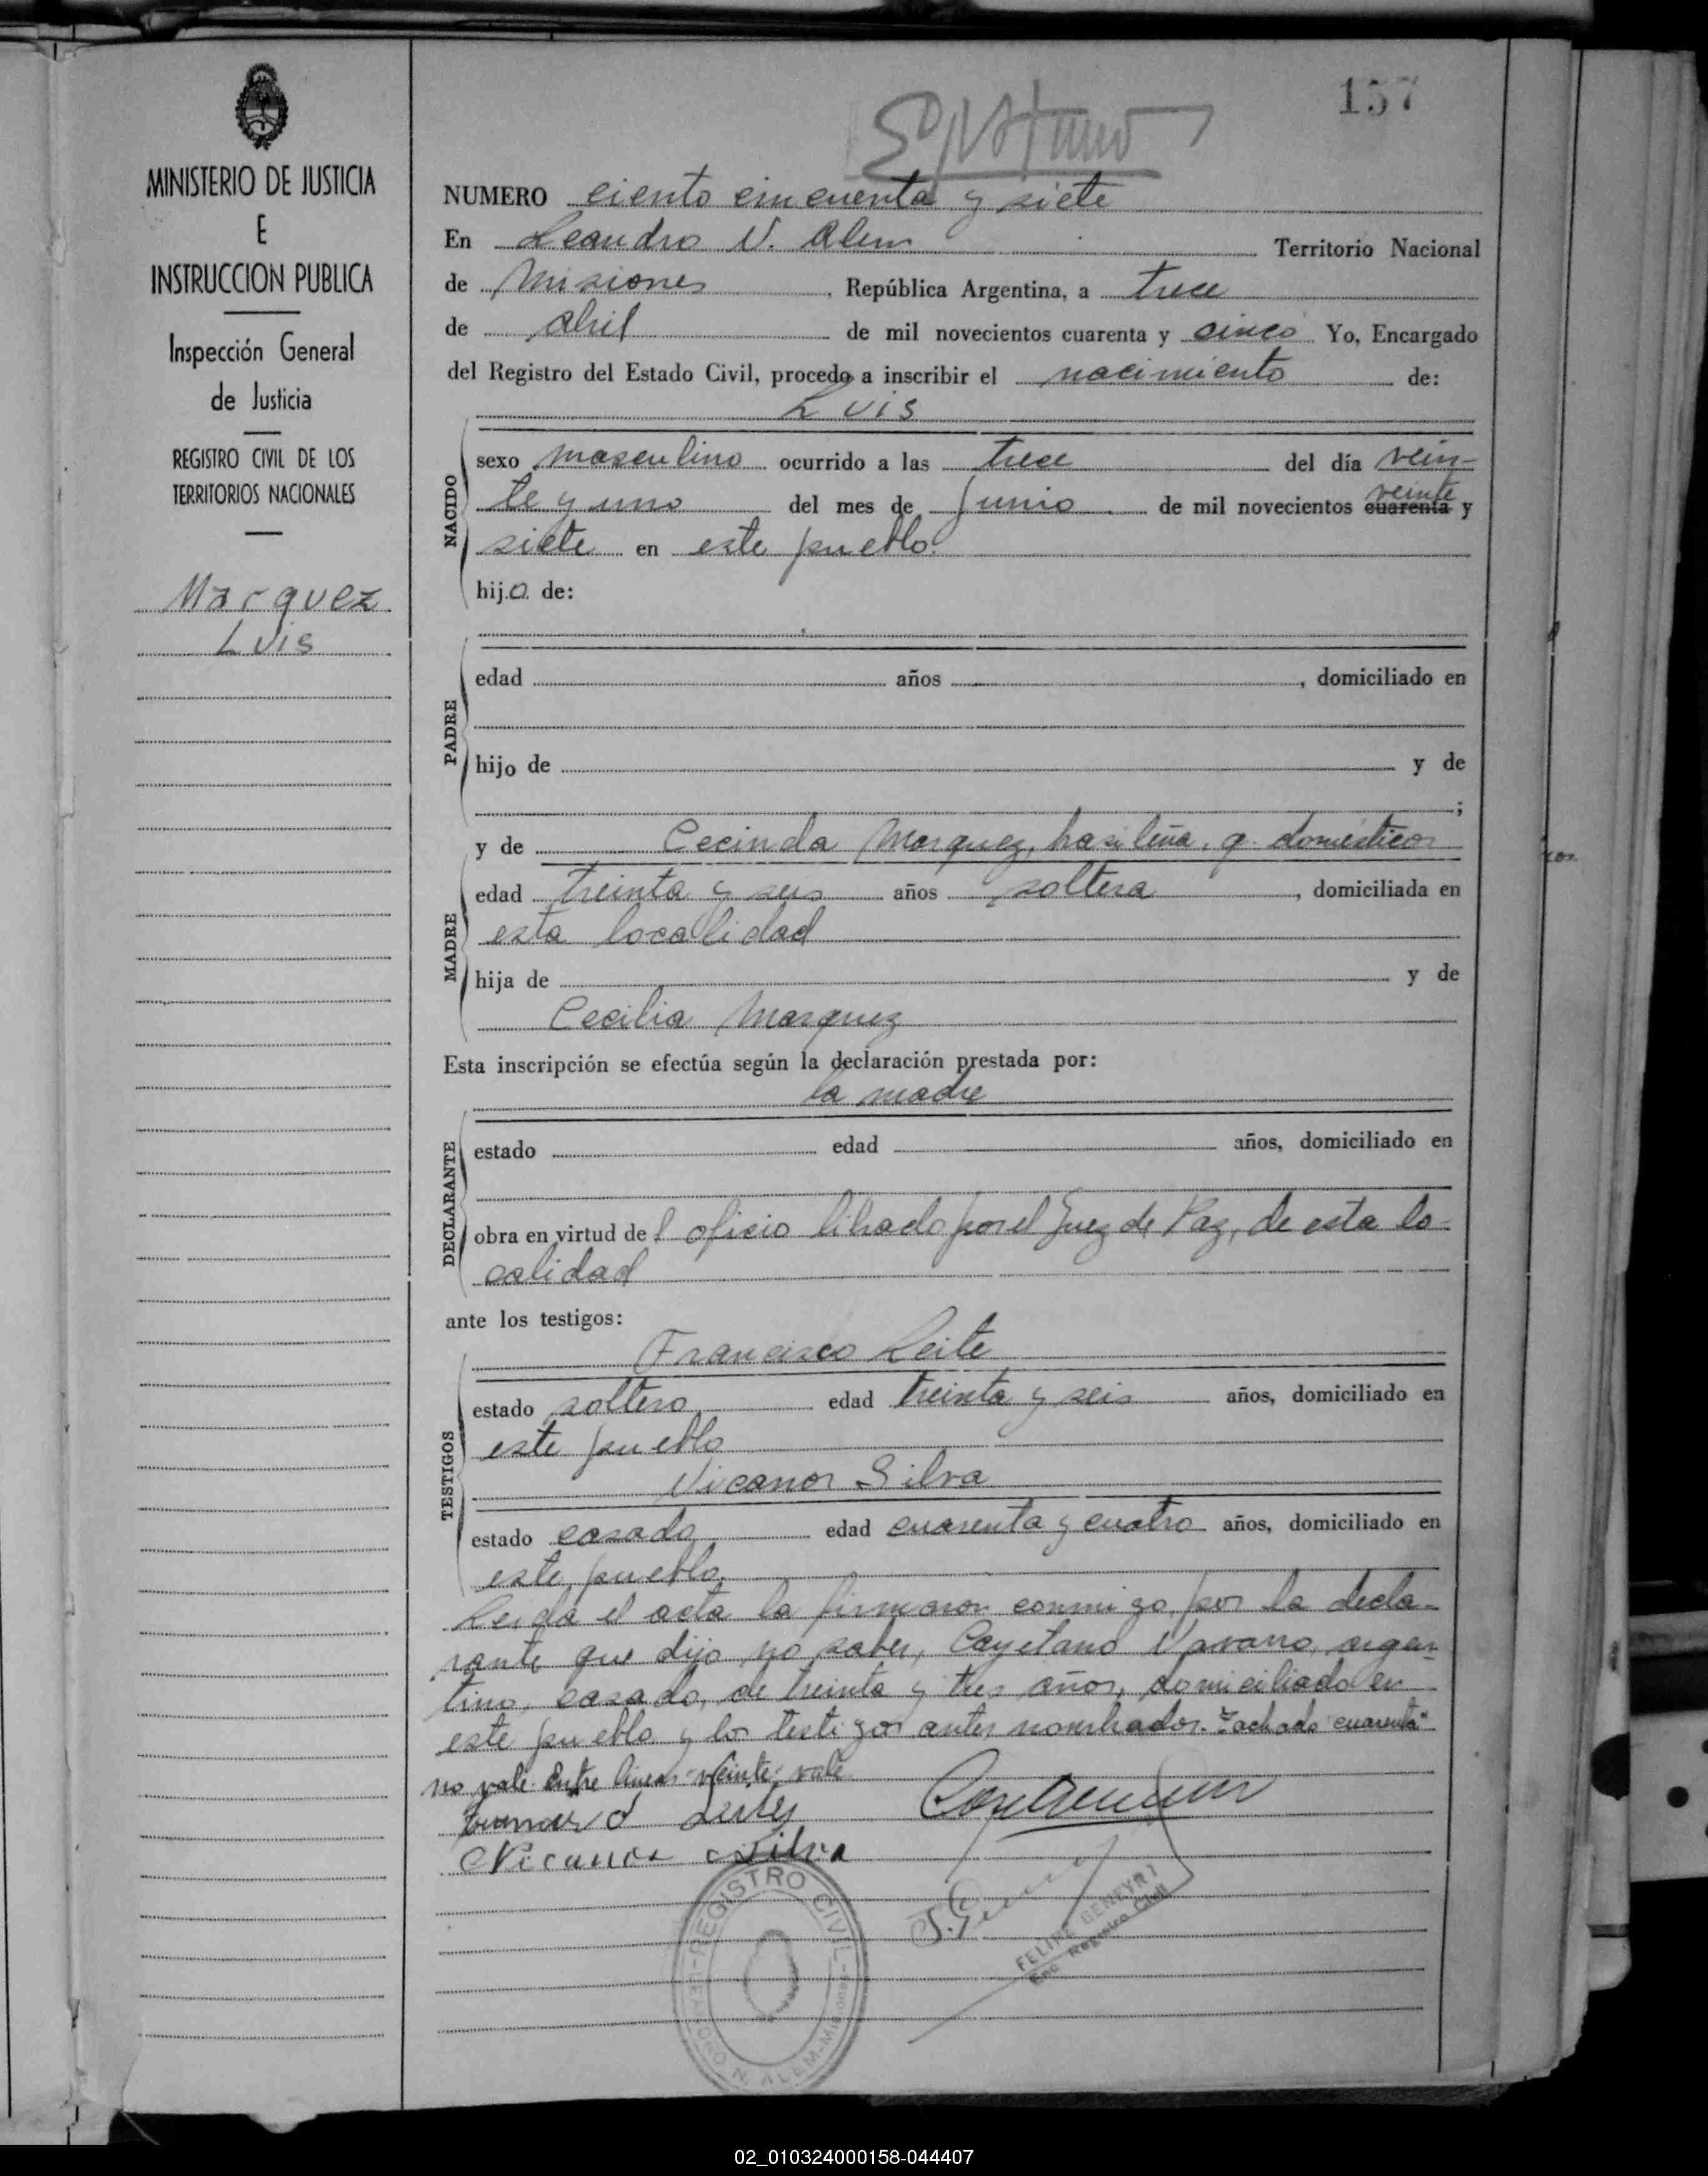 157
NUMERO ciento cincuenta y siete
En Leandro N. Alem Territorio Nacional
de Misiones, República Argentina, a trece
de abril de mil novecientos cuarenta y cinco Yo, Encargado
del Registro del Estado Civil, procedo a inscribir el nacimiento de:
Luis
NACIDO
sexo masculino ocurrido a las trece del día vein-
te y uno del mes de Junio de mil novecientos cuarenta veinte y
siete en este pueblo.
hijo de:
PADRE
edad años , domiciliado en
hijo de y de
;
y de Cecinda Marquez, brasileña, q. domésticos
MADRE
edad treinta y seis años soltera, domiciliada en
esta localidad
hija de y de
Cecilia Marquez
Esta inscripción se efectúa según la declaración prestada por:
la madre
DECLARANTE
estado edad años, domiciliado en
obra en virtud del oficio librado por el Juez de Paz, de esta lo-
calidad
ante los testigos:
Francisco Leite
TESTIGOS
estado soltero edad treinta y seis años, domiciliado en
este pueblo
Nicanor Silva
estado casado edad cuarenta y cuatro años, domiciliado en
este pueblo.
Leida el acta la firmaron conmigo, por la decla-
rante que dijo no saber, Cayetano argen-
tino, casado, de treinta y tres años, domiciliado en
este pueblo y los testigos antes nombrados. Tachado "cuarenta"
no vale. Entre lineas "veinte" vale
Nicanor Silva
REGISTRO CIVIL
LEANDRO N. ALEM - Misiones
FELIPE GEMEYRT
Enc. Registro Civil
MINISTERIO DE JUSTICIA
E
INSTRUCCION PUBLICA
Inspección General
de Justicia
REGISTRO CIVIL DE LOS
TERRITORIOS NACIONALES
Marquez
Luis
02_010324000158-044407